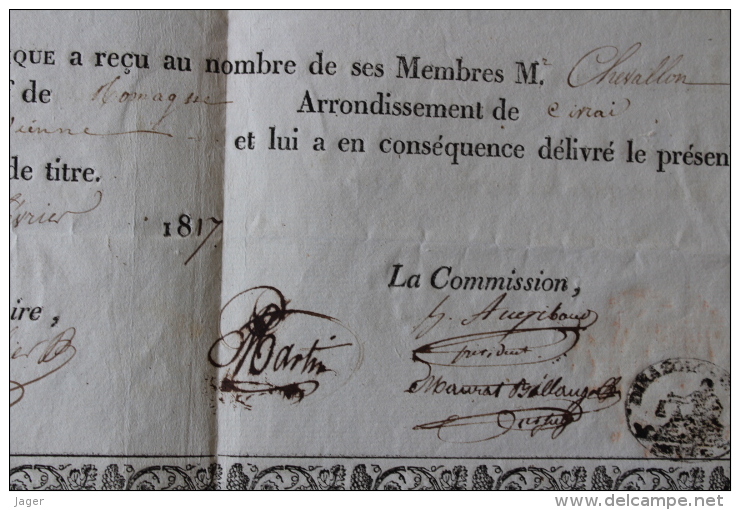 QUE a reçu au nombre de ses Membres M.r Chevallon
de Romagne Arrondissement de Civrai
Vienne et lui a en conséquence délivré le présen
de titre.
évrier 1817
La Commission,
ire, Martin
président
Maurat
jager
www.delcampe.net